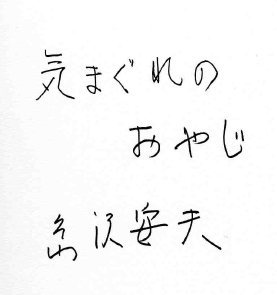 気まぐれの
おやじ
島沢安夫